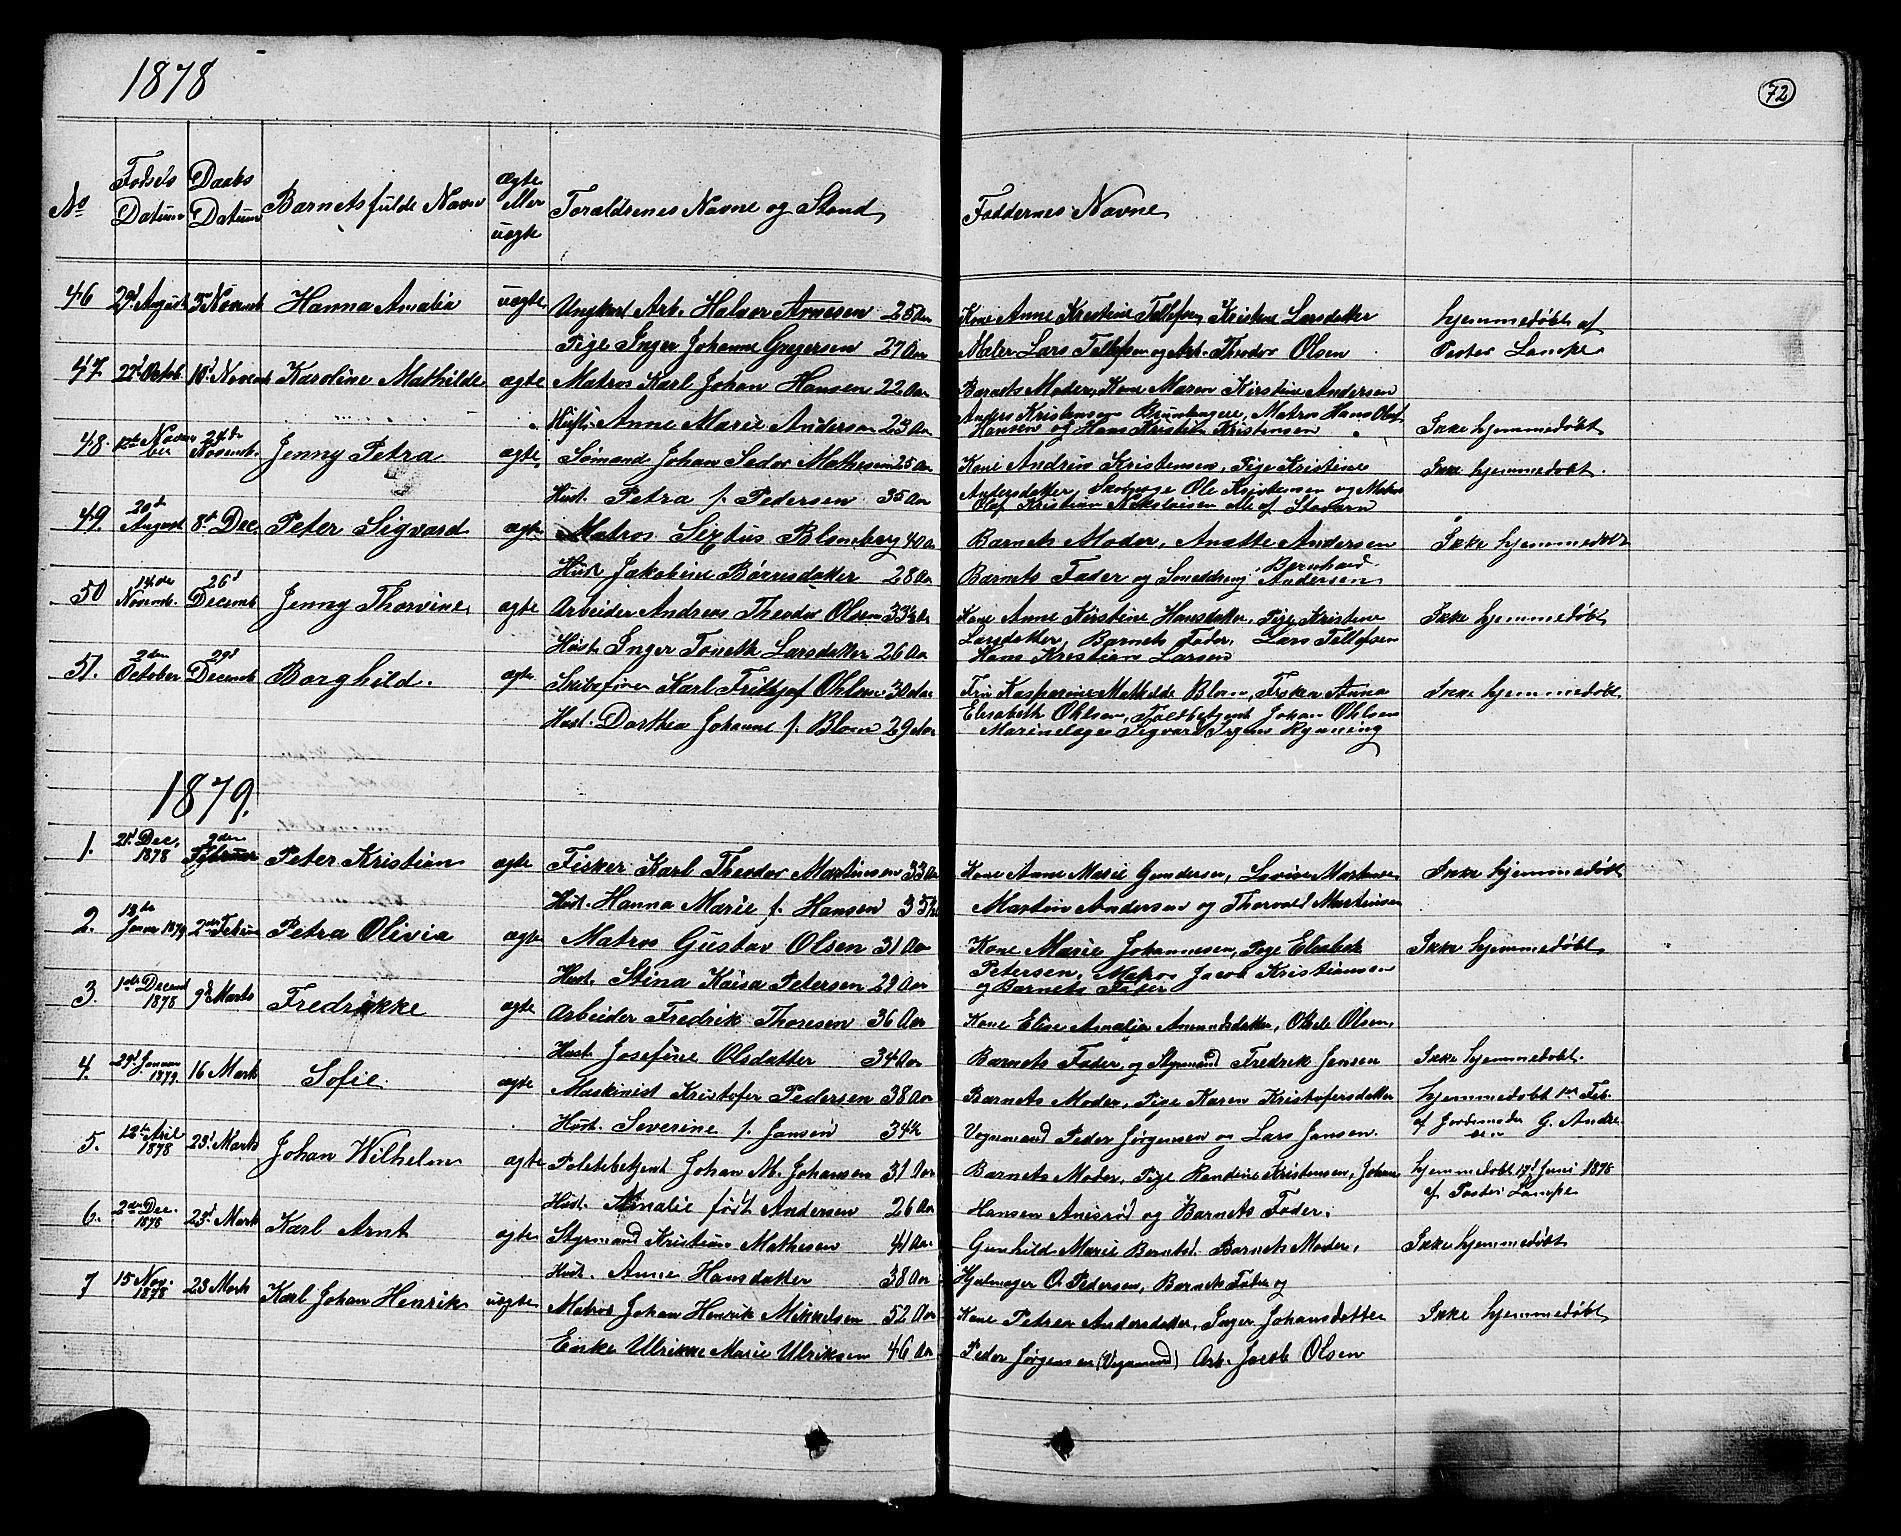 1878
72
No
Fødsels Datum
Daabs Datum
Barnets fulde Navn
Ægte eller uægte
Forældrenes Navne og Stand
Faddernes Navne
46 29d August 3 Novemb Hanna Amalia uægte Ungkarl Arb. Halvor Arnesen 25 Aar Kone Anne Kirstine Tellefsen, Kristine Larsdatter hjemmedøbt af
Pige Inger Johanne Gregersen 27 Aar Maler Lars Tellefsen og Arb. Theodor Olsen Pastor Lampe
47. 22d Octob 10d Novemb Karoline Mathilde ægte Matros Karl Johan Hansen 22 Aar Barnets Moder, Kone Maren Kirstine Andersen
Hust. Anne Marie Andersen 23 Aar Anders Kristensen Matros Hans Olaf
Hansen og Hans Kristian Kristensen Ikke hjemmedøbt
48. 24de Novemb. Jenny Petra ægte Sømand Johan Mathesen 25 Aar Kone Andrine Kristensen, Pige Kristine Ikke hjemmedøbt.
Hust. Petra f. Pedersen 35 Aar Andersdatter, Ole Kristensen og Matros
Olaf Kristian Nikolaisen alle af Stavern
49. 20d August 8d Dec. Peter Sigvard ægte Matros Sixtus Blomberg 40 Aar Barnets Moder, Anette Andersen Ikke hjemmedøbt
Hust. Jakobine Børresdatter 28 Aar Barnets Fader og Bernhard Andersen
50 14de Novemb. 26d Decemb Jenny Thorvine ægte Arbeider Andreas Theodor Olsen Kone Anne Kirstine Hansdatter, Pige Kristine Ikke hjemmedøbt
Hust. Inger Larsdatter 26 Aar Larsdatter, Barnets Fader, Lars Tellefsen
Hans Kristian Larsen
51. 2den October 29d Decemb Borghild. ægte Skibsfører Karl Fritjof Ohlsen 30 Aar Fru Kasperine Mathilde Blom, Frøken Anna Ikke hjemmedøbt
Hust. Dorthea Johanne f. Blom 29 Aar Elisabeth Ohlsen, Toldbetjent Johan Ohlsen
Marinelæge Sigvard Rynning
1879.
1. 21d Dec. 1878 2den Februar Peter Kristian ægte Fisker Karl Theodor Martinsen 33 Aar Kone Anne Marie Gundersen, Lovise Ikke hjemmedøbt
Hust. Hanna Marie f. Hansen Martin Andersen og Thorvald Martinsen
2. Janr 1879 2den Februar Petra Olivia ægte Matros Gustav Olsen 31 Aar Kone Marie Johannesen, Pige Elisabeth Ikke hjemmedøbt
Hust. Stina Kaisa Petersen 29 Aar Petersen, Matros Jacob Kristiansen
og Barnets Fader
3. 1ste Decemb 1878 9d Marts Fredrikke ægte Arbeider Fredrik Thoresen 36 Aar Kone Elise Amalie Amundsdatter, Olsen,
Hust. Josefine Olsdatter 34 Aar Barnets Fader, og Styrmand Fredrik Jensen Ikke hjemmedøbt.
4. 29d Januar 1879. 16 Marts Sofie. ægte Maskinist Kristofer Pedersen 38 Aar Barnets Moder, Pige Karen Kristofersdatter hjemmedøbt Feb.
Hust. Severine f. Jansen Vognmand Peder Jørgensen og Lars Jansen. af Jordmoder G. Andresen
5. 12te April 1878 23d Marts Johan Wilhelm ægte Politibetjent Johan M. Johansen 31 Aar Barnets Moder, Pige Randine Kristensen, Johan hjemmedøbt 19d Juni 1878
Hust. Amalie født Andersen 26 Aar Hansen Anisrød og Barnets Fader. af Pastor Lampe
6. 2den Dec. 1878 23d Marts Karl Arnt ægte Styrmand Kristian Mathesen 41 Aar Gunhild Marie Berntsd. Barnets Moder, Ikke hjemmedøbt
Hust. Anne Hansdatter 38 Aar Hjulmager O. Pedersen, Barnets Fader og
7 15 Nov. 1878 23 Marts Karl Johan Henrik uægte Matros Johan Henrik Mikkelsen 52 Aar Kone Petrea Andersdatter, Inger Johansdatter Ikke hjemmedøbt
Enke Ulrikke Marie Ulriksen 46 Aar Peder Jørgensen (Vognmand) Arb. Jacob Olsen